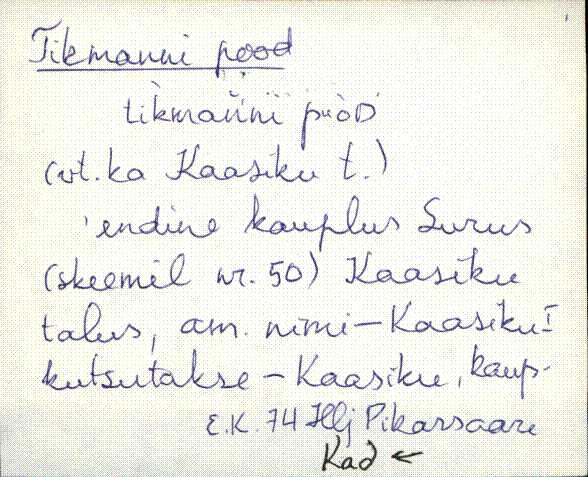 Tikmanni pood
tìkmaǹni puòD
(vt. ka Kaasiku t.)
'endine kauplus Surus
(skeemil nr. 50) Kaasiku
talus, am. nimi – Kaasiku I
kutsutakse – Kaasiku, kaup-
E.K. 74 Hlj Pikarsaare
Kad ←